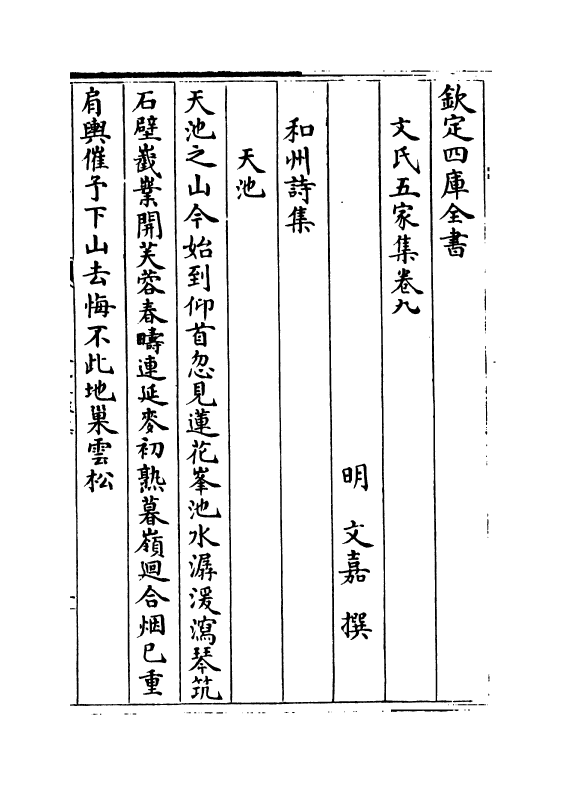 欽定四庫全書
文氏五家集卷九
明　文嘉　撰
和州詩集
天池
天池之山今始到仰首忽見蓮花峯池水潺湲瀉琴筑
石壁嶻業開芙蓉春疇連延麥初熟暮嶺迴合烟已重
肩輿催予下山去悔不此地巢雲松